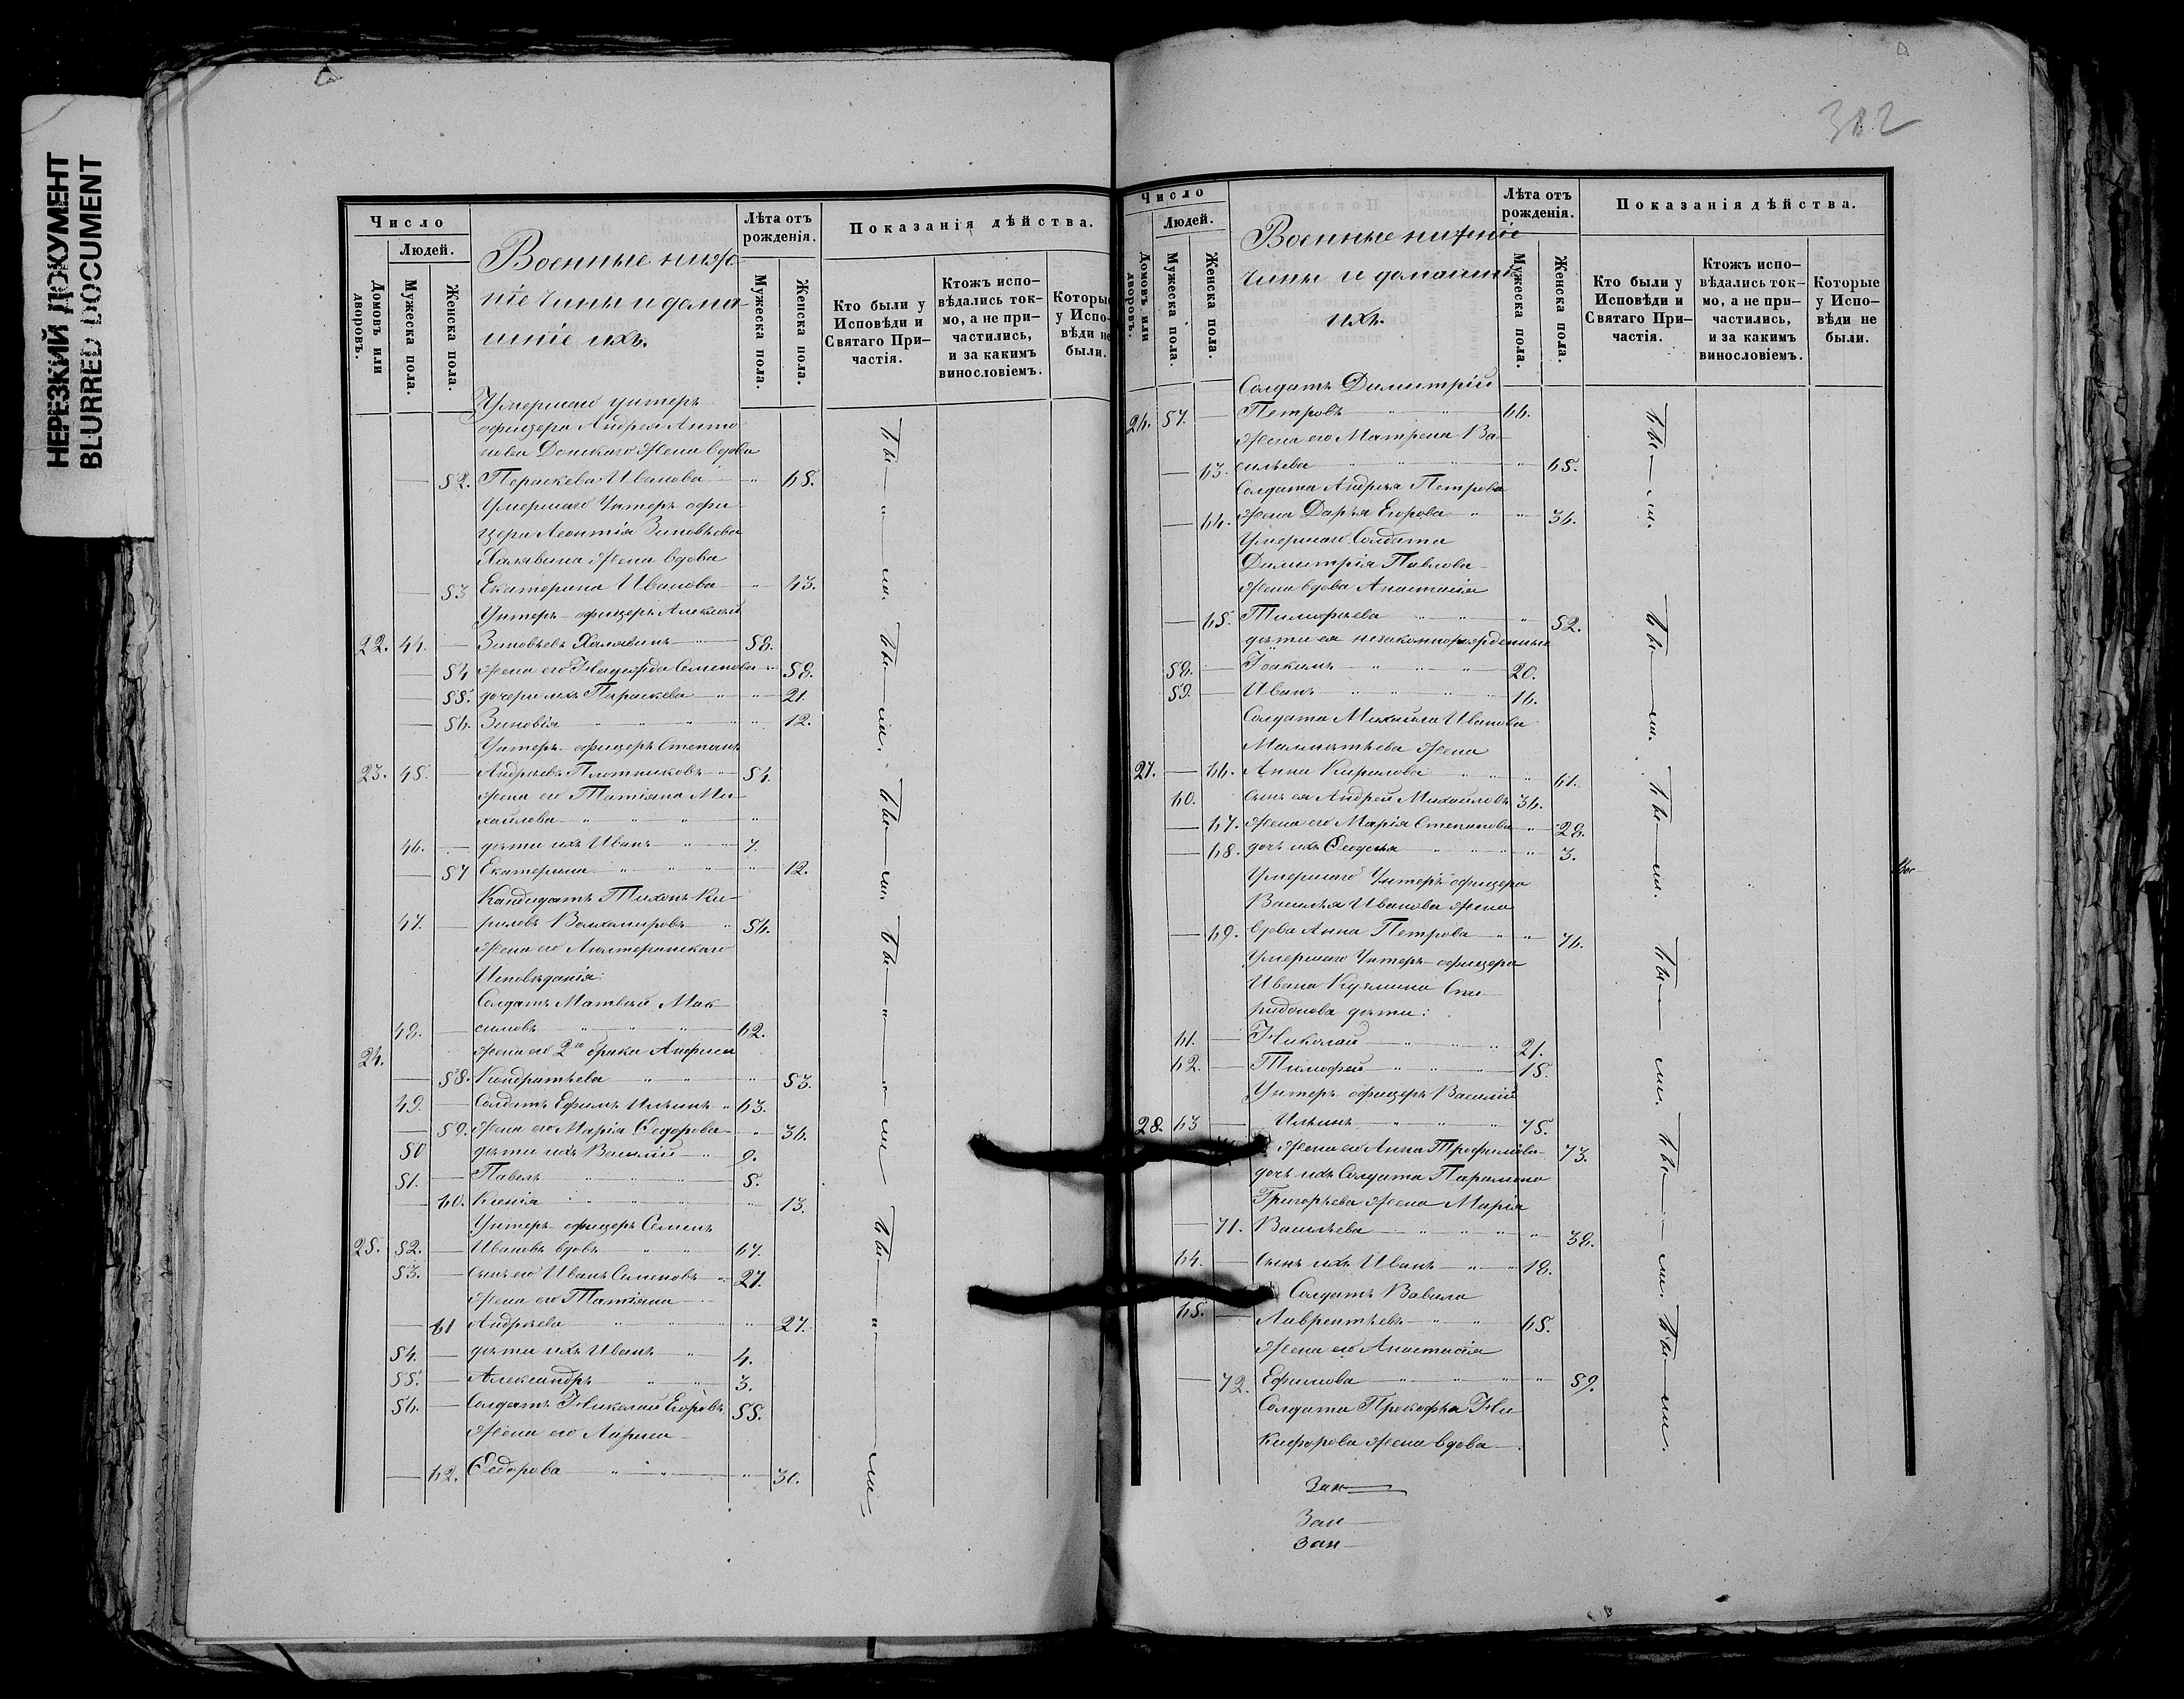 НЕРЕЗКИЙ ДОКУМЕНТ
BLURRED DOCUMENT
Число
Людей.
Домовъ или дворовъ.
Мужеска пола.
Женска пола.
Военные ниж-
ніе чины и дома-
шніе ихъ.
Лѣта отъ рожденія.
Мужеска пола.
Женска пола.
Показанія дѣйства.
Кто были у Исповѣди и Святаго При-частія.
Ктожъ испо-вѣдались ток-мо, а не при-частились, и за какимъ винословіемъ.
Которые у Испо-вѣди не были.
Умершаго унтеръ
офицера Андрея Анто
нова Донскаго жена вдова
52. Параскева Иванова 65.
Умершаго Унтеръ офи
цера Леонтія Зиновьева
Халявина жена вдова
53 Екатерина Иванова 43.
Унтеръ-офицеръ Алексѣй
22. 44. Зиновьевъ Халявинъ 58.
54 жена его Надежда Семенова 58.
55. дочери ихъ Параскева 21
56. Зиновія 12.
Унтеръ-офицеръ Степанъ
23. 45. Андреевъ Плотниковъ 54.
жена его Татіяна Ми-
хайлова
46. дѣти ихъ Иванъ 7.
57 Екатерина 12.
Кандидатъ Тихонъ Ки-
47. риловъ 56.
жена его Лютеранскаго
Исповѣданія:
Солдатъ Матвей Мак-
48. симовъ 62.
24. жена его 2го брака Анфиса
58. Кондратьева 53.
49. Солдатъ Ефимъ Ильинъ 63.
59. жена его Марія Ѳедорова 36.
50 дѣти ихъ Василій 9.
51. Павелъ 5.
60. Ксенія 13.
Унтеръ-офицеръ Семенъ
25. 52. Ивановъ вдовъ 67.
53. сынъ его Иванъ Семеновъ 27.
жена его Татіяна
61 Андреева 27.
54. дѣти ихъ Иванъ 4.
55. Александръ 3.
56. Солдатъ Николай Егоровъ 55.
жена его Лариса
62. Ѳедорова 30.
Число
Людей.
Домовъ или дворовъ.
Мужеска пола.
Женска пола.
Военные нижніе
чины и домашніе
ихъ.
Лѣта отъ рожденія.
Мужеска пола.
Женска пола.
Показанія дѣйства.
Кто были у Исповѣди и Святаго При-частія.
Ктожъ испо-вѣдались ток-мо, а не при-частились, и за какимъ винословіемъ.
Которые у Испо-вѣди не были.
Солдатъ Димитрій
26. 57. Петровъ 66.
жена его Матрена Ва-
63. сильева 65.
Солдата Андрея Петрова
64. жена Дарья Егорова 36.
Умершаго Солдата
Димитрія Павлова
жена вдова Анастасія
65. Тимофѣева 52.
дѣти ея незаконнорожденные
58. Іоакимъ 20.
59. Иванъ 16.
Солдата Михаила Иванова
жена
27. 66. Анна Кирилова 61.
60. Сынъ ея Андрей Михайловъ 36.
67. жена его Марія Степанова 28.
68. дочь ихъ 3.
Умершаго Унтеръ-офицера
Василья Иванова жена
69. вдова Анна Петрова 76.
Умершаго Унтеръ-офицера
Ивана Кузмина Спи-
ридонова дѣти:
61. Николай 21.
62. Тимофей 15.
Унтеръ офицеръ Василій
28. 63 Ильинъ 75.
жена его Анна Трофимова 73.
дочь ихъ Солдата
Григорьева жена Марія
71. Васильева 38.
64. Сынъ ихъ Иванъ 18.
Солдатъ Вавила
65. Лаврентьевъ 65.
жена его Анастасія
72. Ефимова 59.
Солдата Прокофья Ни
кифорова жена вдова
Зак
Зан
зан